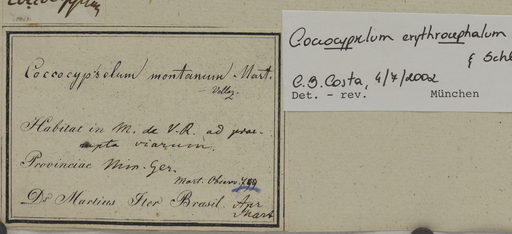 Coccocypselum montanum Mart.
Velloz.
Habitat in M. de V.R. ad prae-
rupta viarum.
Provinciae Min. Ger.
Mart. Observ. 799
Dr Martius Iter Brasil. Apr
Mart
Coccocypselum erythrocephalum
& Schl
C.B. Costa, 4/7/2002
Det. - rev. München